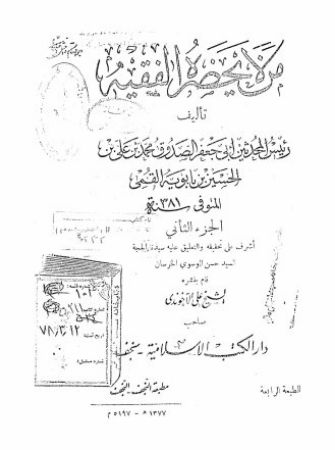 من لا يحضره الفقيه
تأليف
رئيس المحدثين أبي جعفر الصدوق محمد بن علي بن
الحسين بن بابويه القمي
المتوفى سنة ٣٨١
الجزء الثاني
أشرف على تحقيقه والتعليق عليه سيدنا الحجة
السيد حسن الموسوي الخرسان
قام بنشره
الشيخ علي الآخوندي
صاحب
دار الكتب الإسلامية - نجف
الطبعة الرابعة
مطبعة النجف - النجف
٧٨/٣/١٢